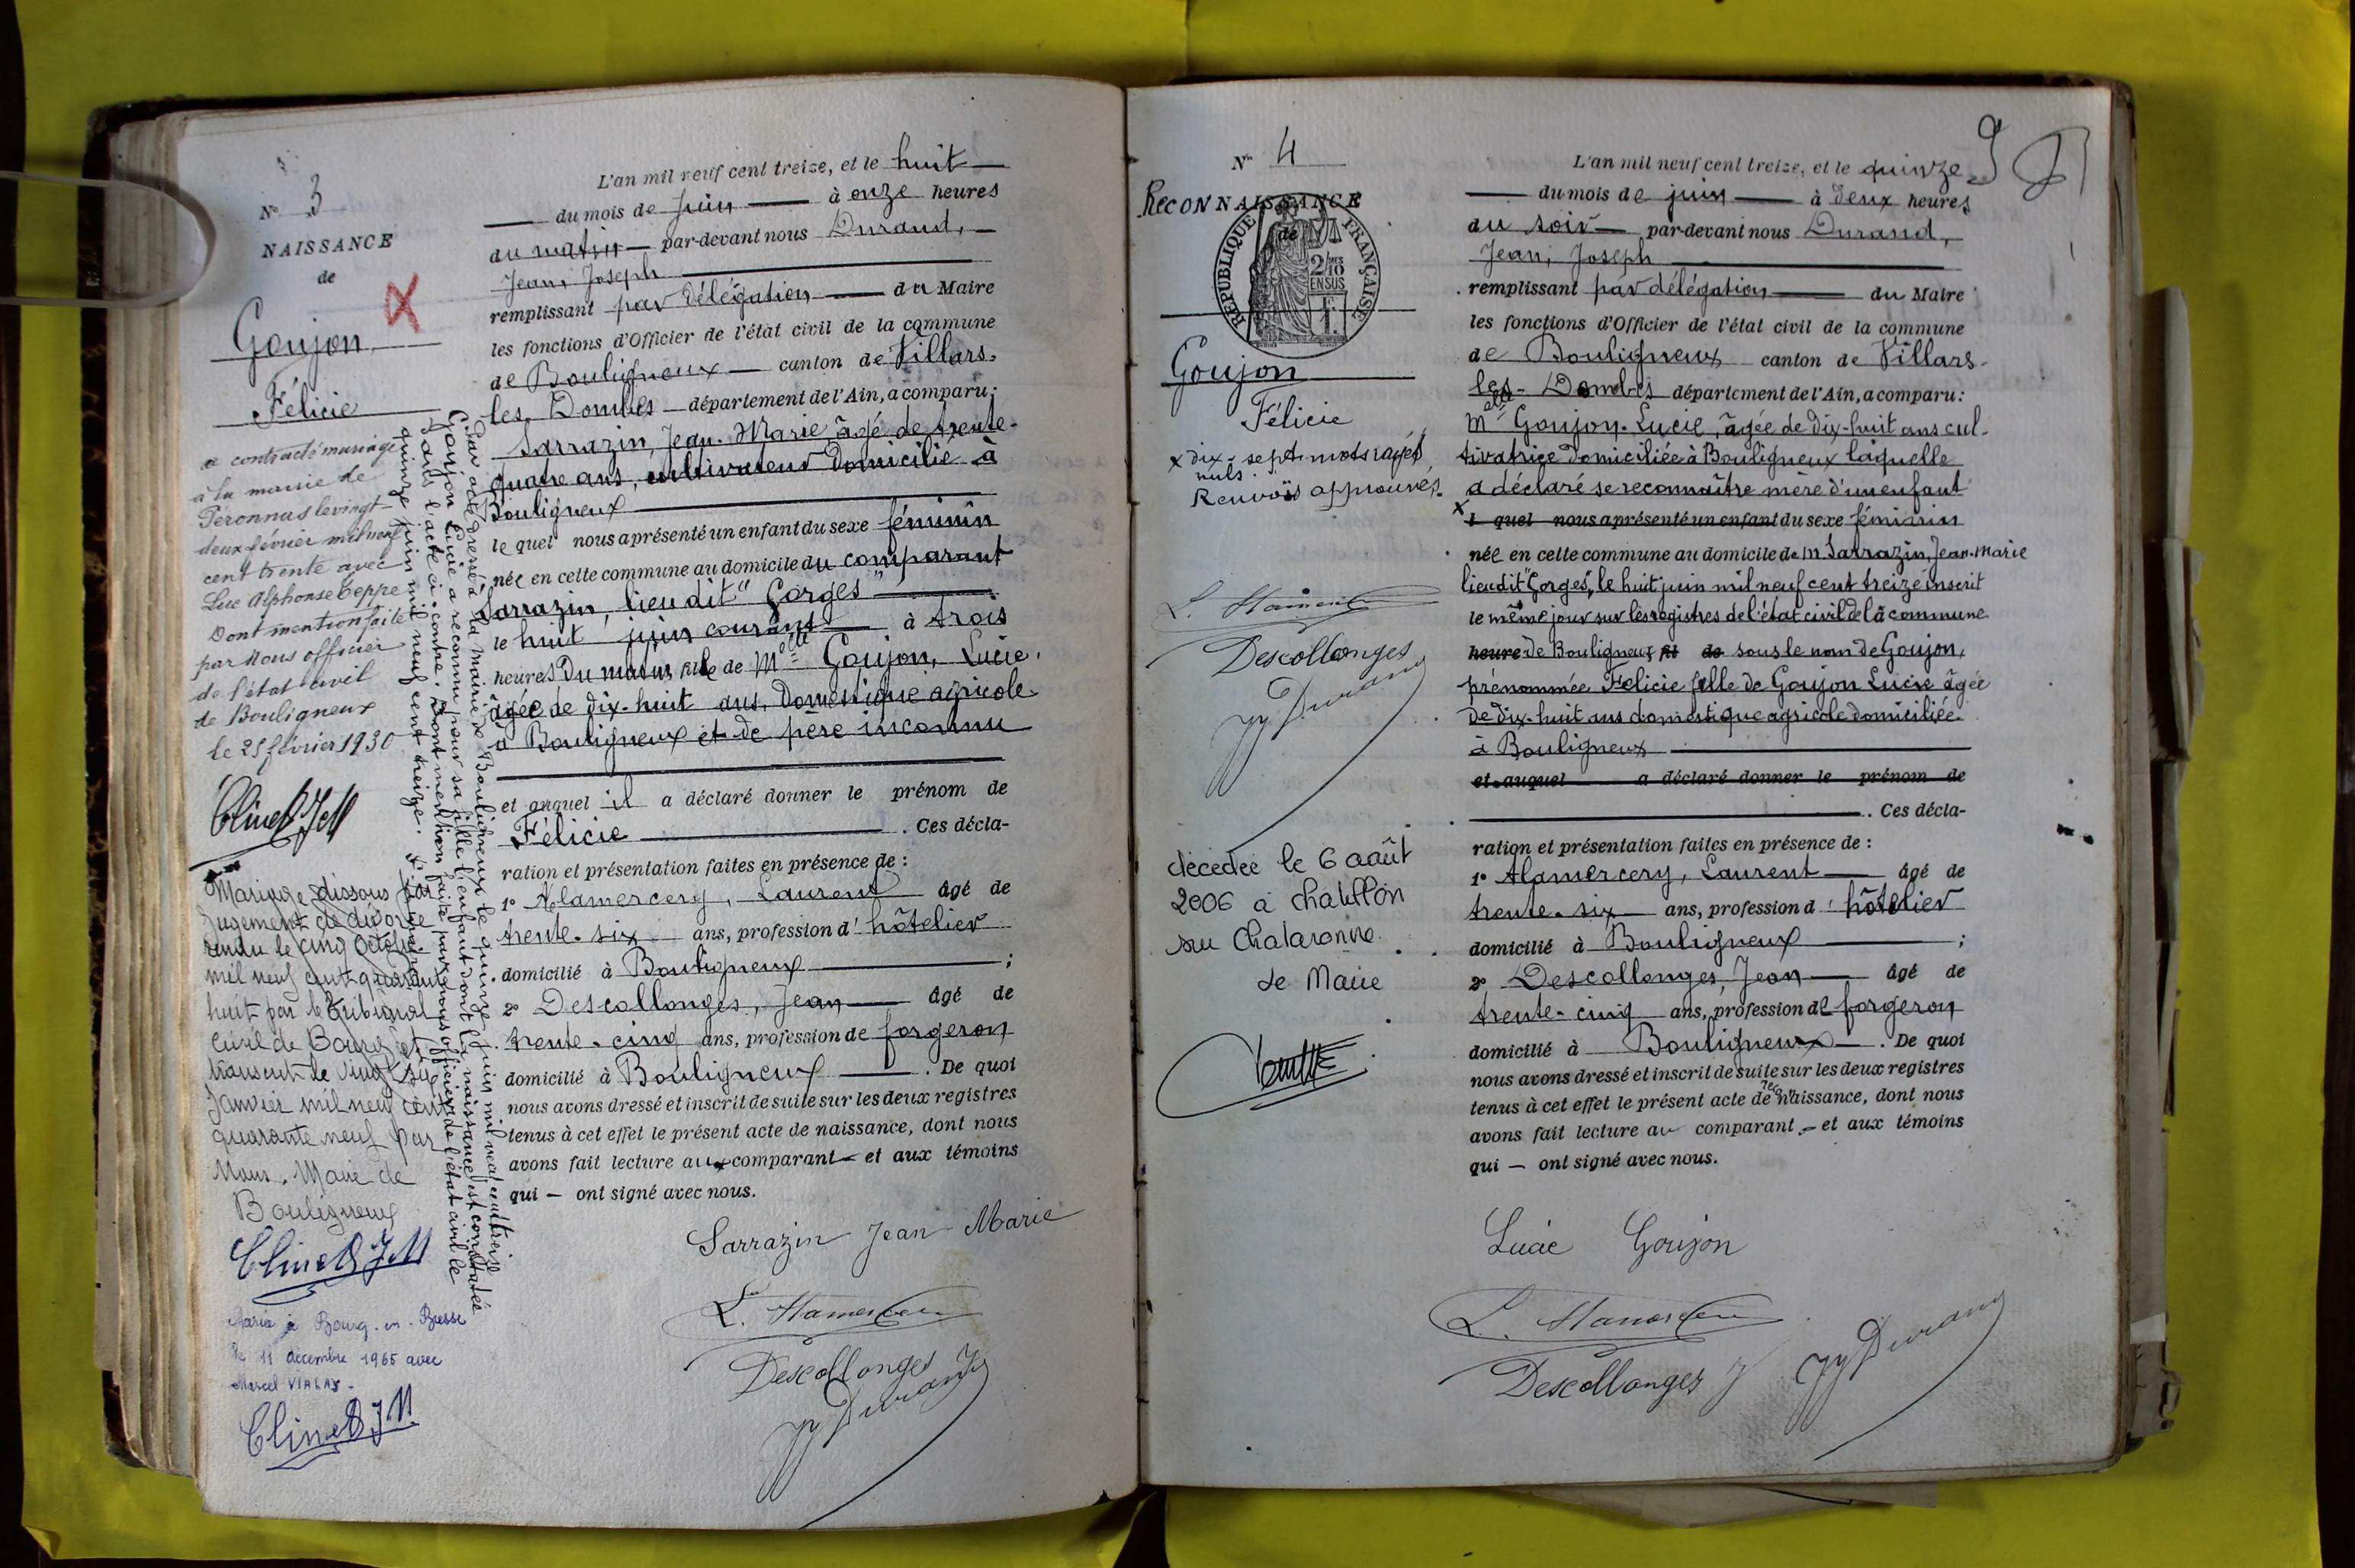 N° 3
NAISSANCE
de
Goujon
Félicie
a contracté mariage
à la mairie de
Péronnas le vingt-
deux février mil neuf
cent trente avec
Luc Alphonse Teppe
Dont mention faite
par Nous officier
de l'état civil
de Bouligneux
le 25 février 1930
Clinet JM
Mariage dissous par
Jugement de divorce
rendu le cinq octobre
mil neuf cent quarante
huit par le Tribunal
civil de Bourg et
transcrit le vingt six
Janvier mil neuf cent
quarante neuf par
Nous. Maire de
Bouligneux
Clinet JM
Mariée à Bourg-en-Bresse
le 11 décembre 1965 avec
Marcel VIALAY-
Clinet JM
Par acte dressé à la mairie de Bouligneux le quinze juin mil neuf cent treize
Goujon Lucie a reconnu pour sa fille l'enfant dont la naissance est constatée
dans l'acte ci-contre. Dont mention faite par nous officier de l'état civil le
quinze juin mil neuf cent treize.
L'an mil neuf cent treize, et le huit
du mois de juin à onze heures
du matin par-devant nous Durand,
Jean, Joseph
remplissant par délégation du Maire
les fonctions d'Officier de l'état civil de la commune
de Bouligneux canton de Villars-
les Dombes département de l'Ain, a comparu:
Sarrazin, Jean-Marie âgé de trente-
quatre ans, cultivateur domicilié à
Bouligneux
le quel nous a présenté un enfant du sexe féminin
née en cette commune au domicile du comparant
Sarrazin, lieu dit "Gorges"
le huit juin courant à trois
heures du matin fille de Melle Goujon, Lucie,
âgée de dix-huit ans, domestique agricole
à Bouligneux et de père inconnu
et auquel il a déclaré donner le prénom de
Félicie . Ces décla-
ration et présentation faites en présence de :
1° Alamercery, Laurent âgé de
trente-six ans, profession d' hôtelier
domicilié à Bouligneux ;
2° Descollonges, Jean âgé de
trente-cinq ans, profession de forgeron
domicilié à Bouligneux . De quoi
nous avons dressé et inscrit de suite sur les deux registres
tenus à cet effet le présent acte de naissance, dont nous
avons fait lecture au comparant et aux témoins
qui — ont signé avec nous.
Sarrazin Jean-Marie
L. Alamercery
Descollonges J
JJ Durand
N° 4
RECONNAISSANCE
de
RÉPUBLIQUE FRANÇAISE
2/10 MES
EN SUS
1 F.
Goujon
Félicie
x dix-sept mots rayés
nuls
Renvois approuvés.
L. Alamercery
Descollonges
JJ Durand
décédée le 6 août
2006 à Chatillon
sur Chalaronne.
Le Maire
9
L'an mil neuf cent treize, et le quinze
du mois de juin à deux heures
du soir par-devant nous Durand,
Jean, Joseph
remplissant par délégation du Maire
les fonctions d'Officier de l'état civil de la commune
de Bouligneux canton de Villars-
les-Dombes département de l'Ain, a comparu:
Melle Goujon-Lucie, âgée de dix-huit ans cul-
tivatrice domiciliée à Bouligneux laquelle
a déclaré se reconnaître mère d'un enfant
x l quel nous a présenté un enfant du sexe féminin
née en cette commune au domicile de M Sarrazin, Jean-Marie
lieu dit "Gorges", le huit juin mil neuf cent treize inscrit
le même jour sur les registres de l'état civil de la commune
heure de Bouligneux fil de sous le nom de Goujon,
prénommée Félicie fille de Goujon Lucie âgée
de dix-huit ans domestique agricole domiciliée
à Bouligneux
et auquel a déclaré donner le prénom de
. Ces décla-
ration et présentation faites en présence de :
1° Alamercery, Laurent âgé de
trente-six ans, profession d' hôtelier
domicilié à Bouligneux ;
2° Descollonges, Jean âgé de
trente-cinq ans, profession de forgeron
domicilié à Bouligneux . De quoi
nous avons dressé et inscrit de suite sur les deux registres
tenus à cet effet le présent acte de recon naissance, dont nous
avons fait lecture au comparant et aux témoins
qui — ont signé avec nous.
Lucie Goujon
L. Alamercery
Descollonges J
JJ Durand